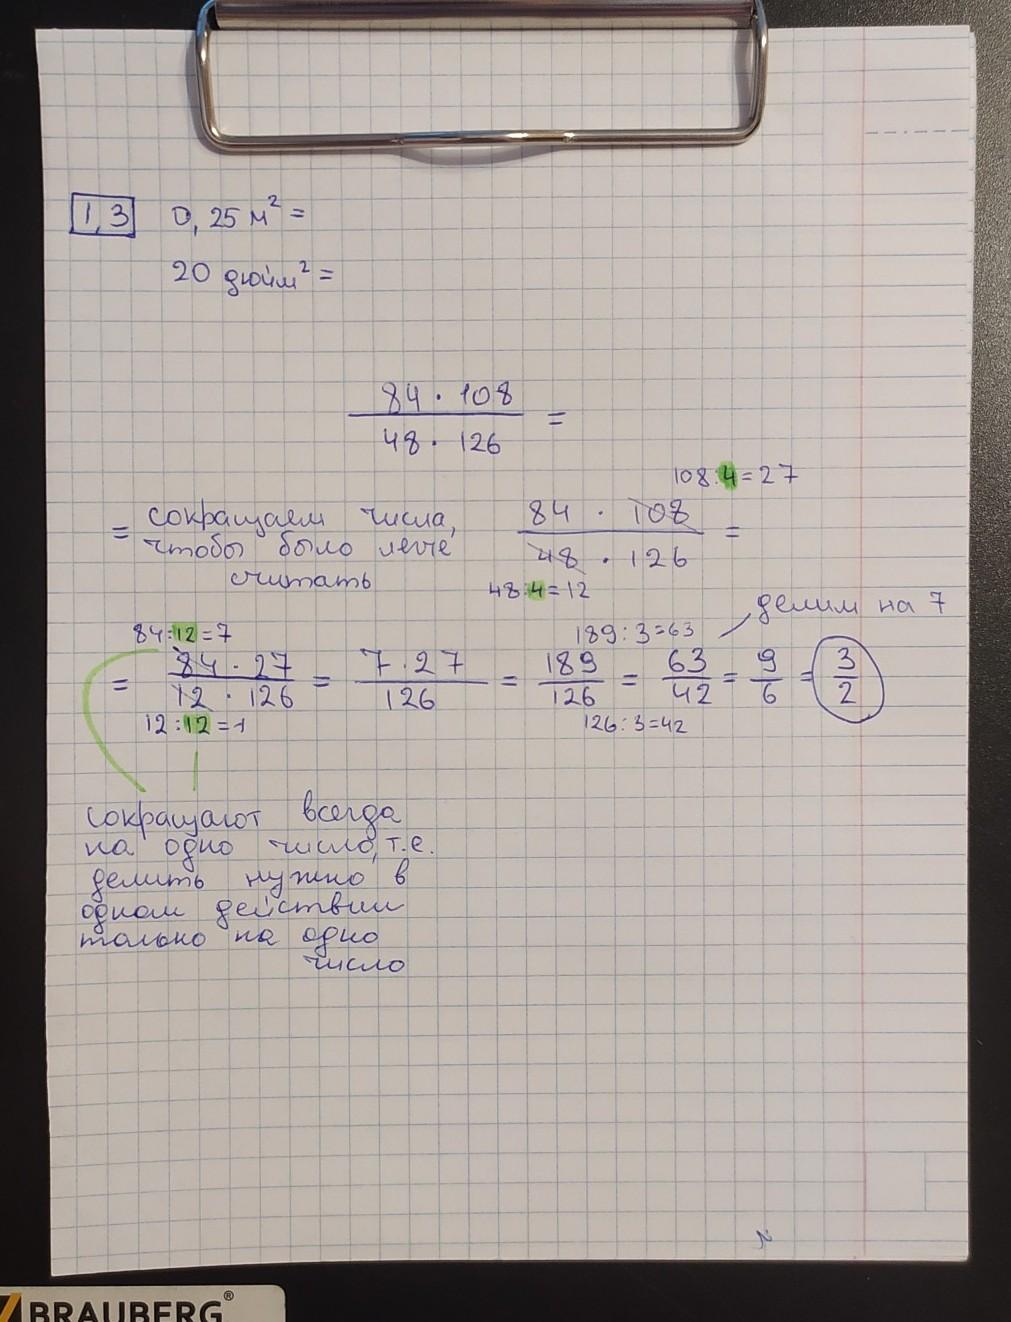 1,3 0,25 м² =
20 дюйм² =
84 · 108 / 48 · 126 =
108:4=27
= сокращаем числа, 84 · 108 / 48 · 126 =
чтобы было легче
считать
48:4=12
делим на 7
84:12=7 189:3=63
= 84 · 27 / 12 · 126 = 7 · 27 / 126 = 189/126 = 63/42 = 9/6 = 3/2
12:12=1 126:3=42
сокращают всегда
на одно число, т.е.
делить нужно в
одном действии
только на одно
число
BRAUBERG®